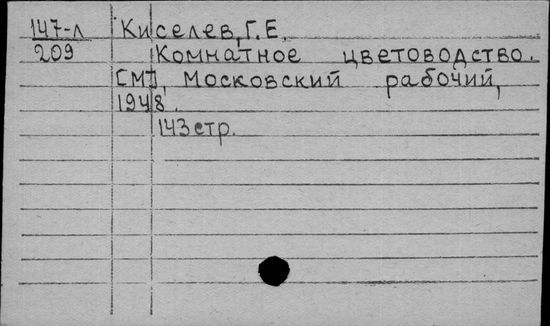 147-л Киселев, Г.Е.
209 Комнатное цветоводство.
[М], Московский рабочий,
1948.
143 стр.